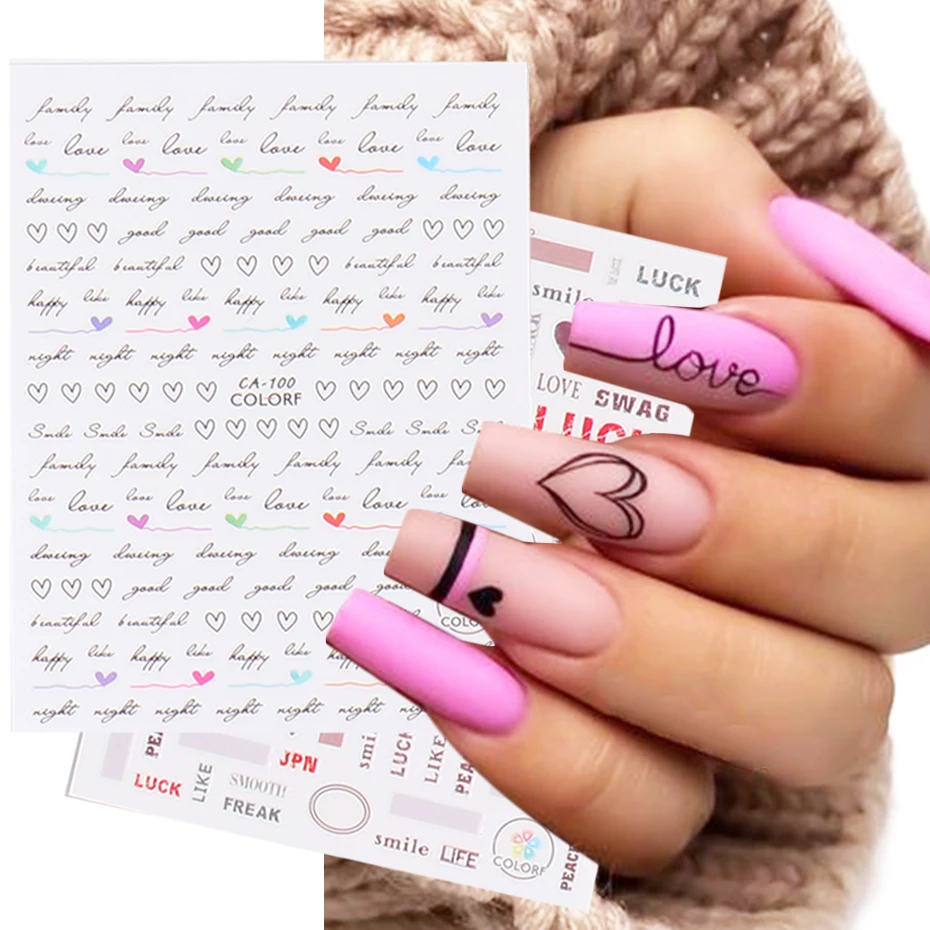 family family family family family family
love love love love love love love love love love
dweing dweing dweing dweing dweing dweing
good good good good good
beautiful beautiful beautiful beautiful
happy like happy like happy like happy like happy like
night night night night night night night night
CA-100
COLORF
Smile Smile Smile Smile Smile
family family family family family
love love love love love love love love love
dweing dweing dweing dweing
good good good good
beautiful beautiful
happy like happy like happy like
night night night night night night
LUCK
smile
LOVE SWAG
LUCK
love
JPN
LUCK
LIKE
SMOOTH
FREAK
smile LIFE
LUCK
LIKE
COLORF
PEACE